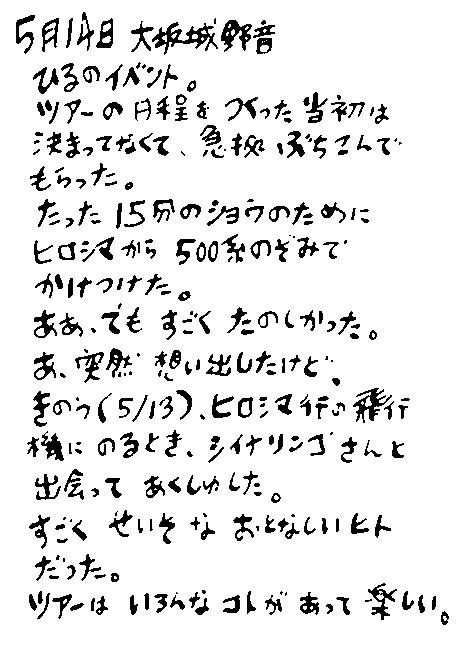 5月14日 大坂城野音
ひるのイベント。
ツアーの日程をつくった当初は
決まってなくて、急拠ぶちこんで
もらった。
たった15分のショウのために
ヒロシマから500系のぞみで
かけつけた。
ああ、でもすごくたのしかった。
あ、突然想い出したけど、
きのう(5/13)、ヒロシマ行の飛行
機にのるとき、シイナリンゴさんと
出会ってあくしゅした。
すごくせいそなおとなしいヒト
だった。
ツアーはいろんなコトがあって楽しい。